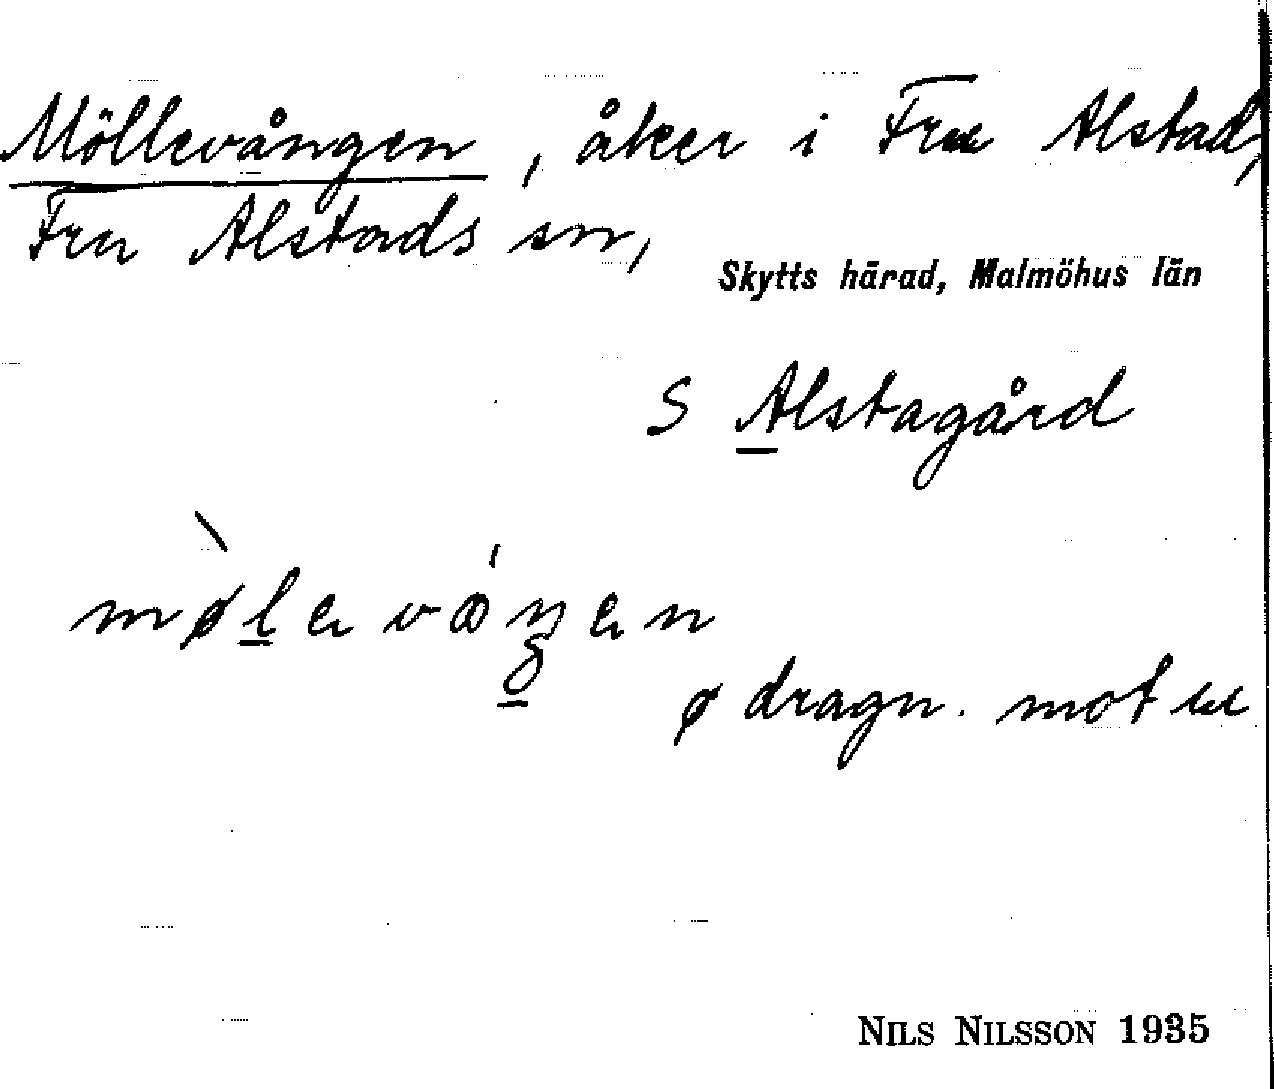 Möllevången, åker i Fru Alstad,
Fru Alstads sn,
Skytts härad, Malmöhus län
S Alstagård
møle våŋen
ø dragn. mot œ
NILS NILSSON 1935